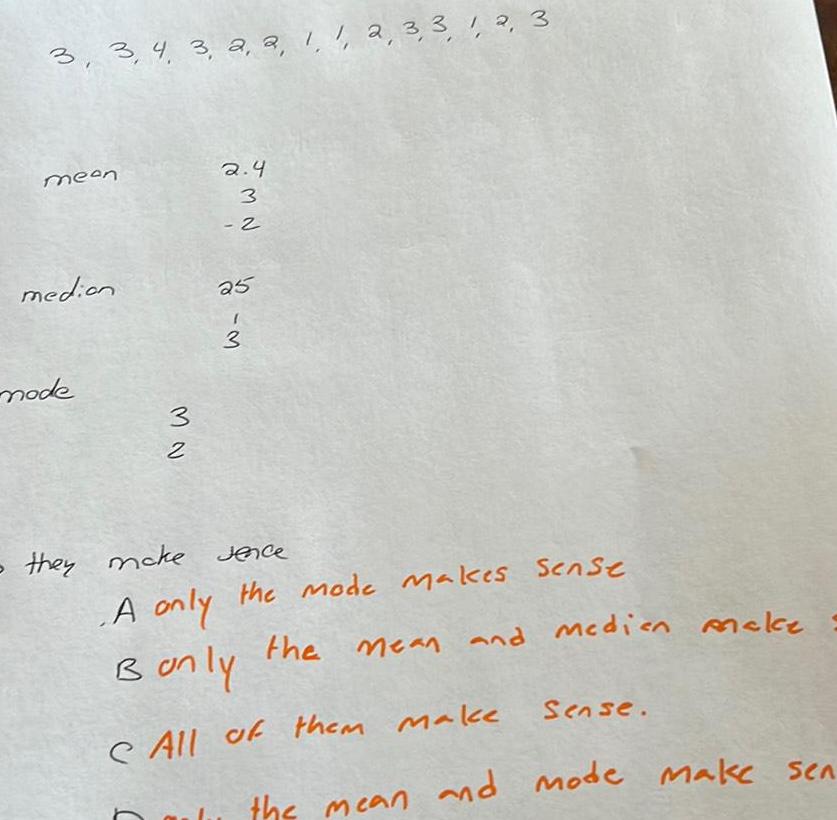 3, 3, 4, 3, 2, 2, 1, 1, 2, 3, 3, 1, 2, 3
mean 2.4
3
-2
median 25
1
3
mode
3
2
they make sence
A only the mode makes sense
B only the mean and median make
C All of them make sense.
the mean and mode make sen